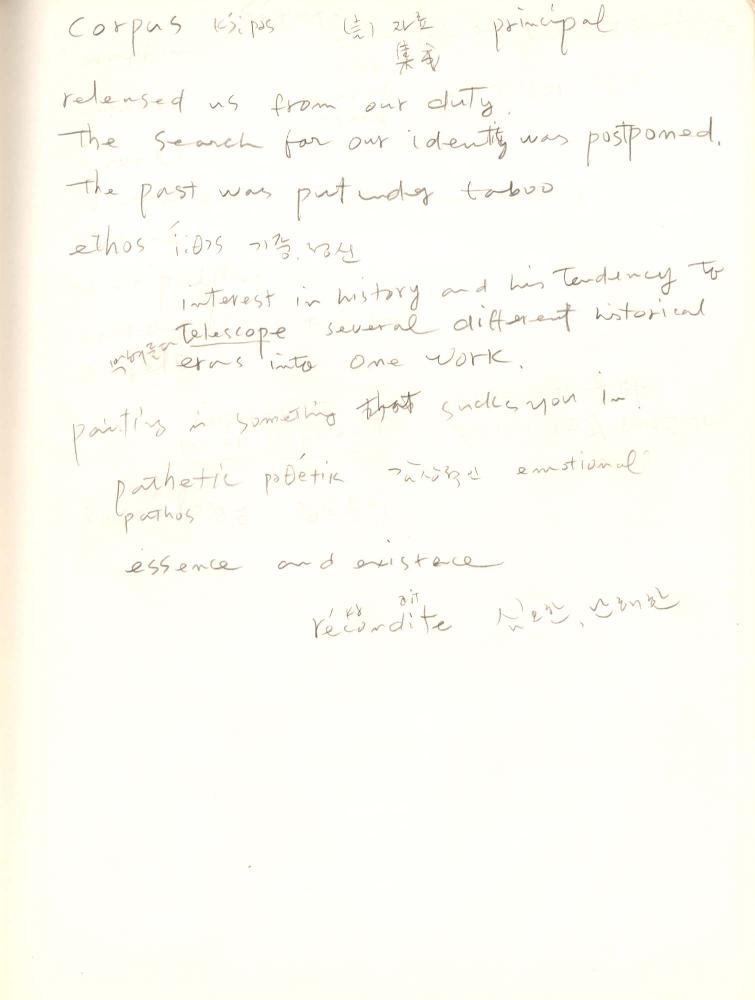 corpus kɔ́ːpəs (言) 자료 principal
集成
released us from our duty.
The search for our identity was postponed.
The past was put under taboo
ethos íːθɔs 기풍.정신
interest in history and his tendency to
telescope several different historical
eras into one work.
painting is something that sucks you in.
pathetic pəθétik 감상적인 emotional
pathos
essence and existace
récondite 심오한, 난해한